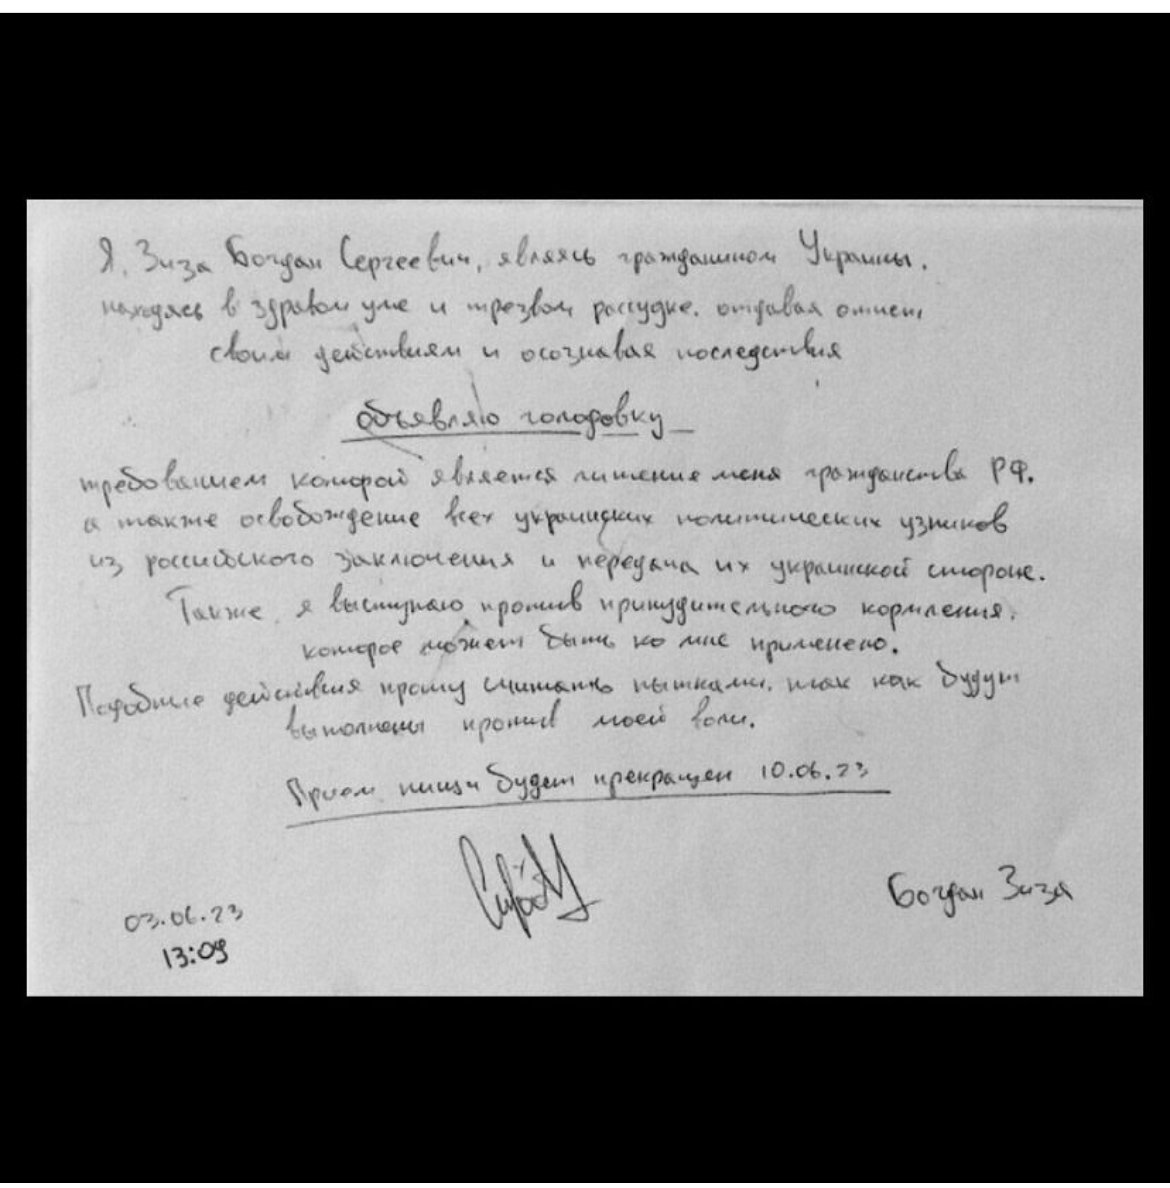 Я, Зиза Богдан Сергеевич, являясь гражданином Украины,
находясь в здравом уме и трезвом рассудке, отдавая отчет,
своим действиям и осознавая последствия
объявляю голодовку
требованием которой является лишение меня гражданства РФ,
а также освобождение всех украинских политических узников
из российского заключения и передача их украинской стороне.
Также, я выступаю против принудительного кормления,
которое может быть ко мне применено.
Подобные действия прошу считать пытками, так как будут
выполнены против моей воли.
Прием пищи будет прекращен 10.06.23
Богдан Зиза
03.06.23
13:09